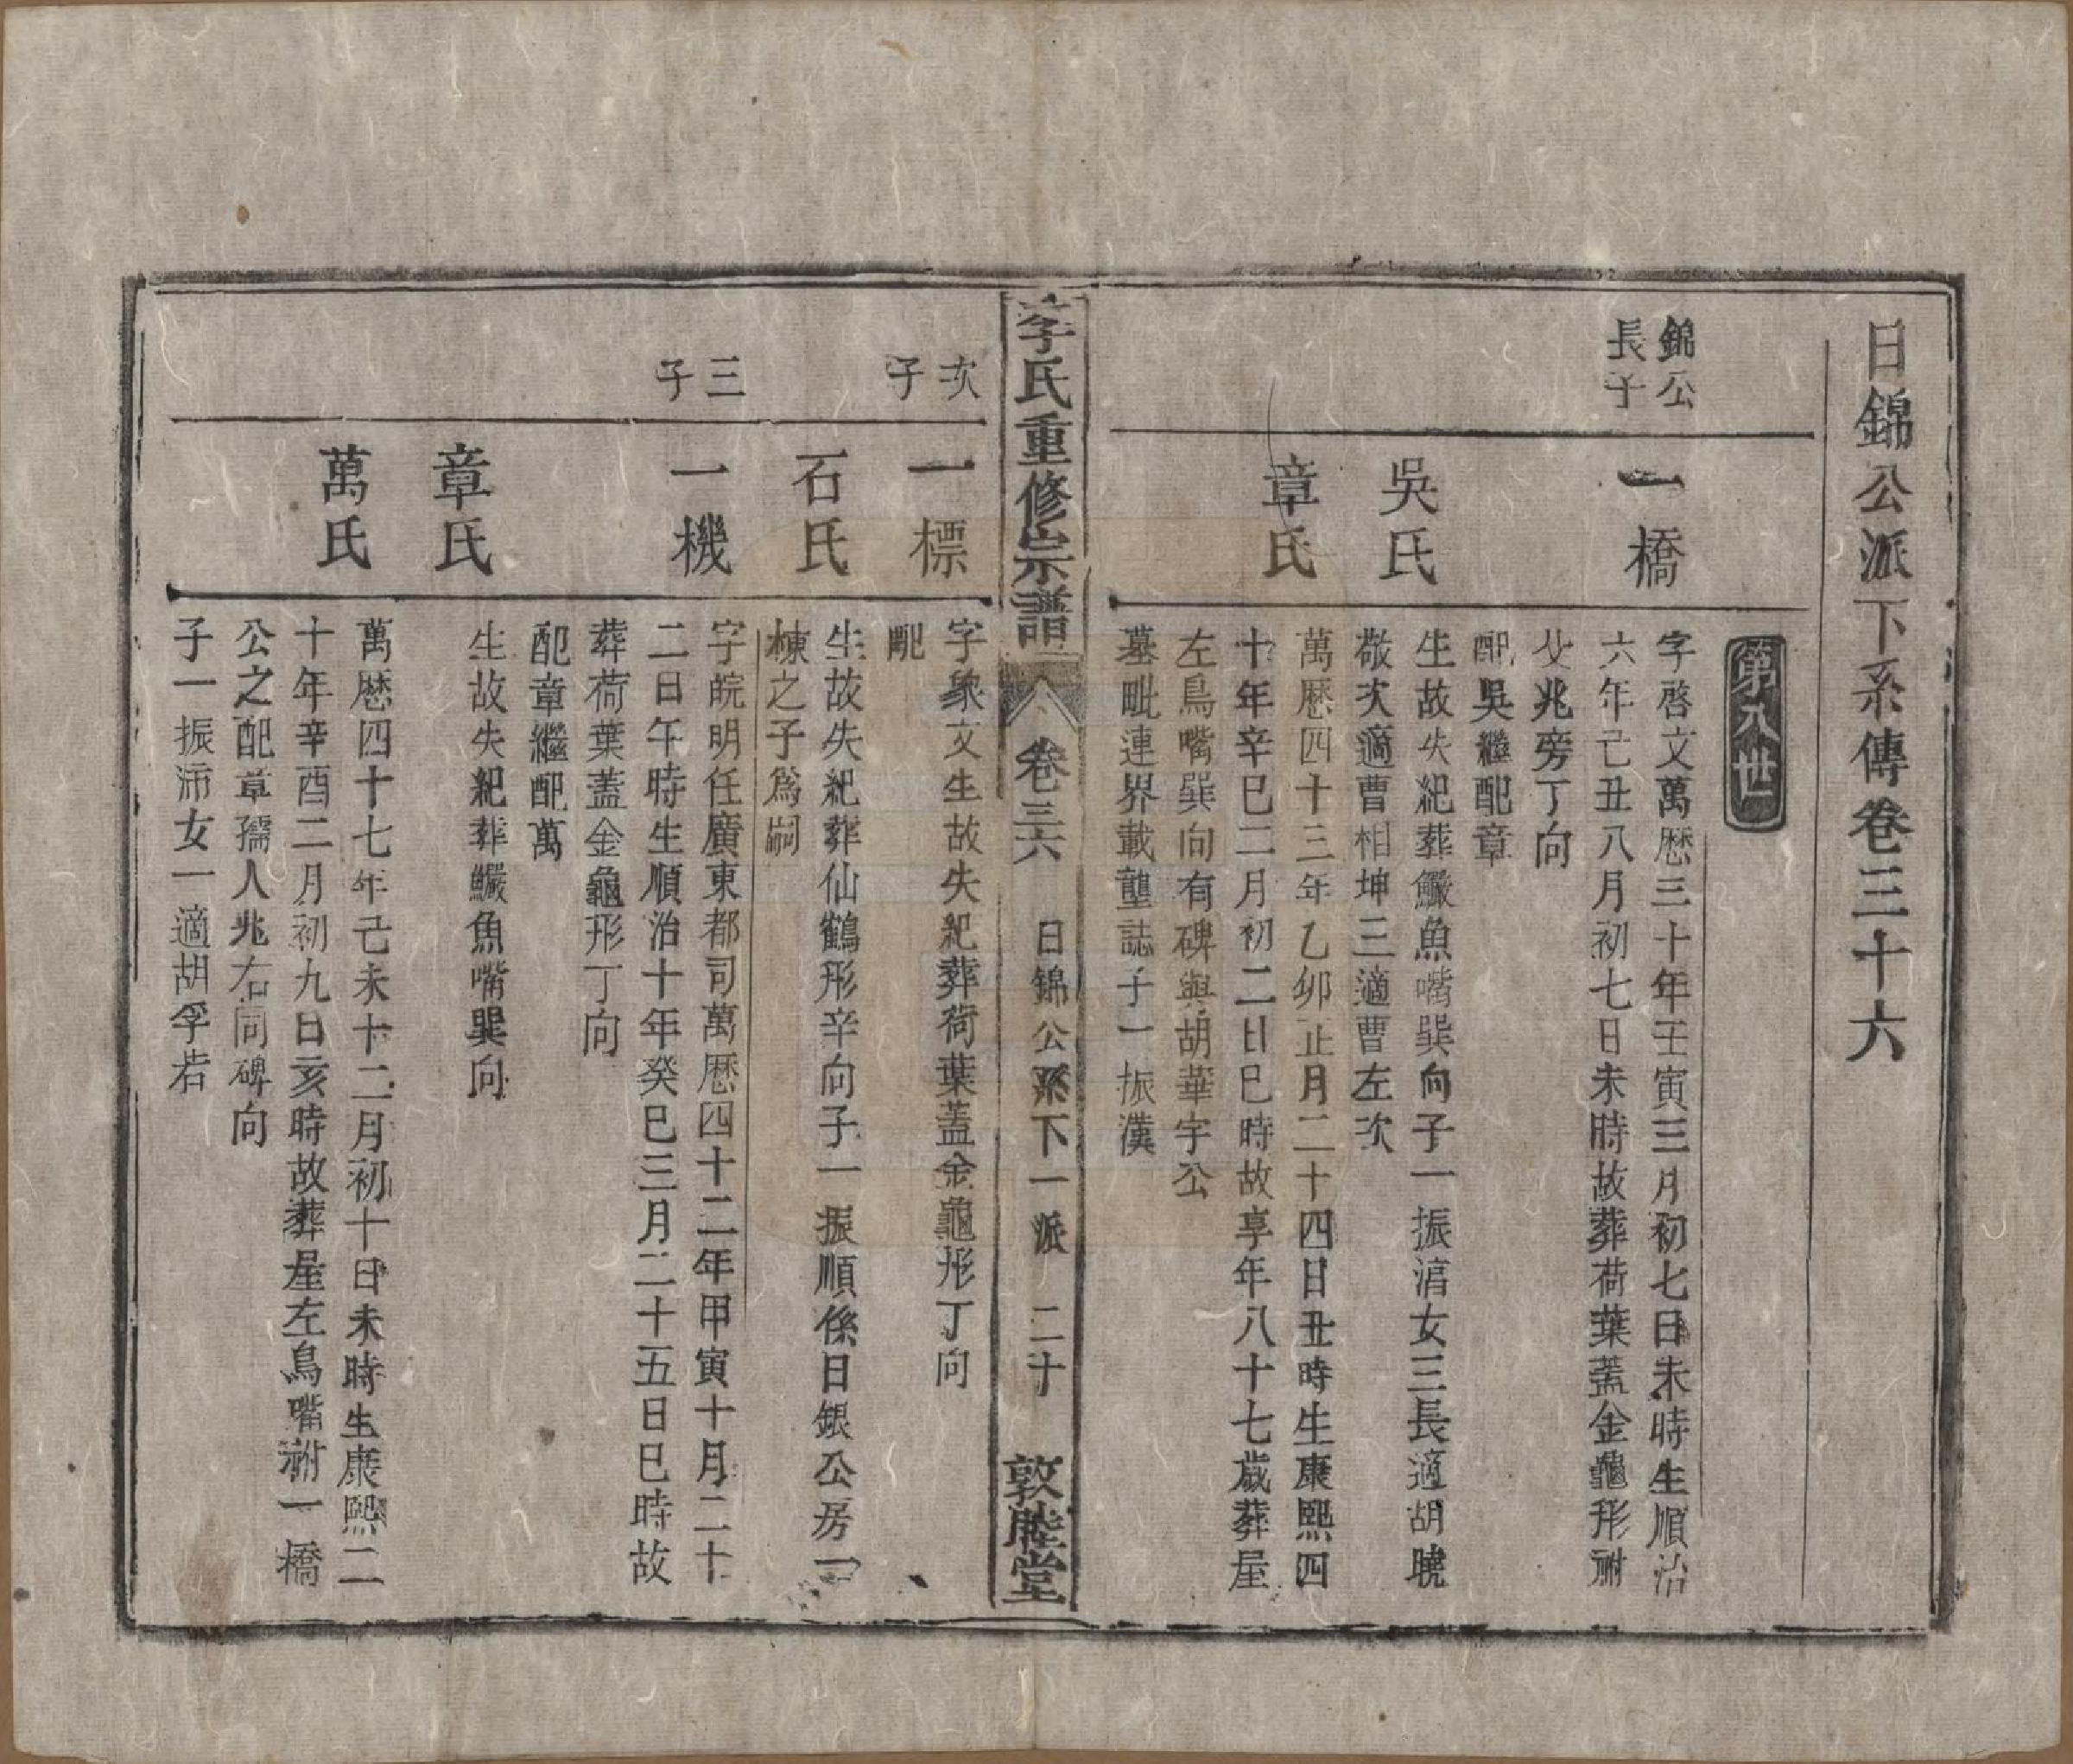 日錦公派下系傳卷三十六
第八世
錦公
長子
一橋
字啓文萬曆三十年壬寅三月初七日未時生順治
六年己丑八月初七日未時故葬荷葉蓋金龜形祔
父兆旁丁向
配吳繼配章
吳氏
生故失紀葬鱖魚嘴巽向子一振湻女三長適胡曉
敬次適曹相坤三適曹左次
章氏
萬曆四十三年乙卯正月二十四日丑時生康熙四
十年辛巳二月初二日巳時故享年八十七歲葬屋
左鳥嘴巽向有碑與胡華宇公
墓毗連界載壟誌子一振漢
李氏重修宗譜
卷三六
日錦公系下一派
二十
敦睦堂
次
子
一標
字象文生故失紀葬荷葉蓋金龜形丁向
配
石氏
生故失紀葬仙鶴形辛向子一振順係日銀公房一
棟之子爲嗣
三
子
一機
字皖明任廣東都司萬曆四十二年甲寅十月二十
二日午時生順治十年癸巳三月二十五日巳時故
葬荷葉蓋金龜形丁向
配章繼配萬
章氏
生故失紀葬鱖魚嘴巽向
萬氏
萬曆四十七年己未十二月初十日未時生康熙二
十年辛酉二月初九日亥時故葬屋左鳥嘴祔一橋
公之配章孺人兆右同碑向
子一振沛女一適胡孚若